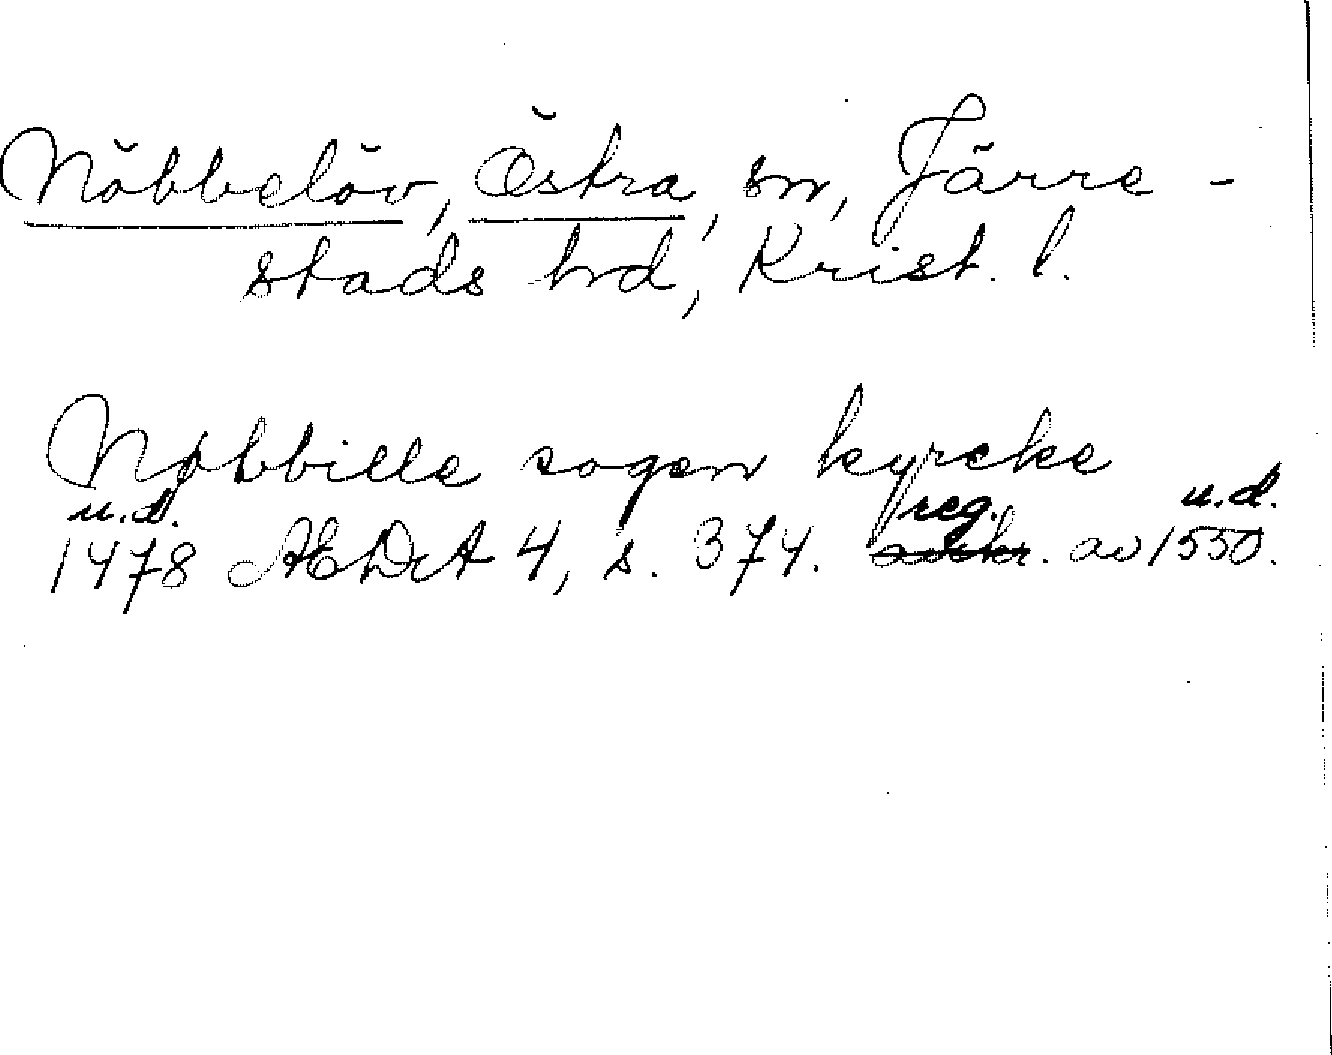 Nöbbelöv, Östra, sn, Järre-
stads hrd, Krist. l.
Nøbbille sogen kyrcke
u.d. reg. u.d.
1478 ÆDA 4, s. 374. av 1550.